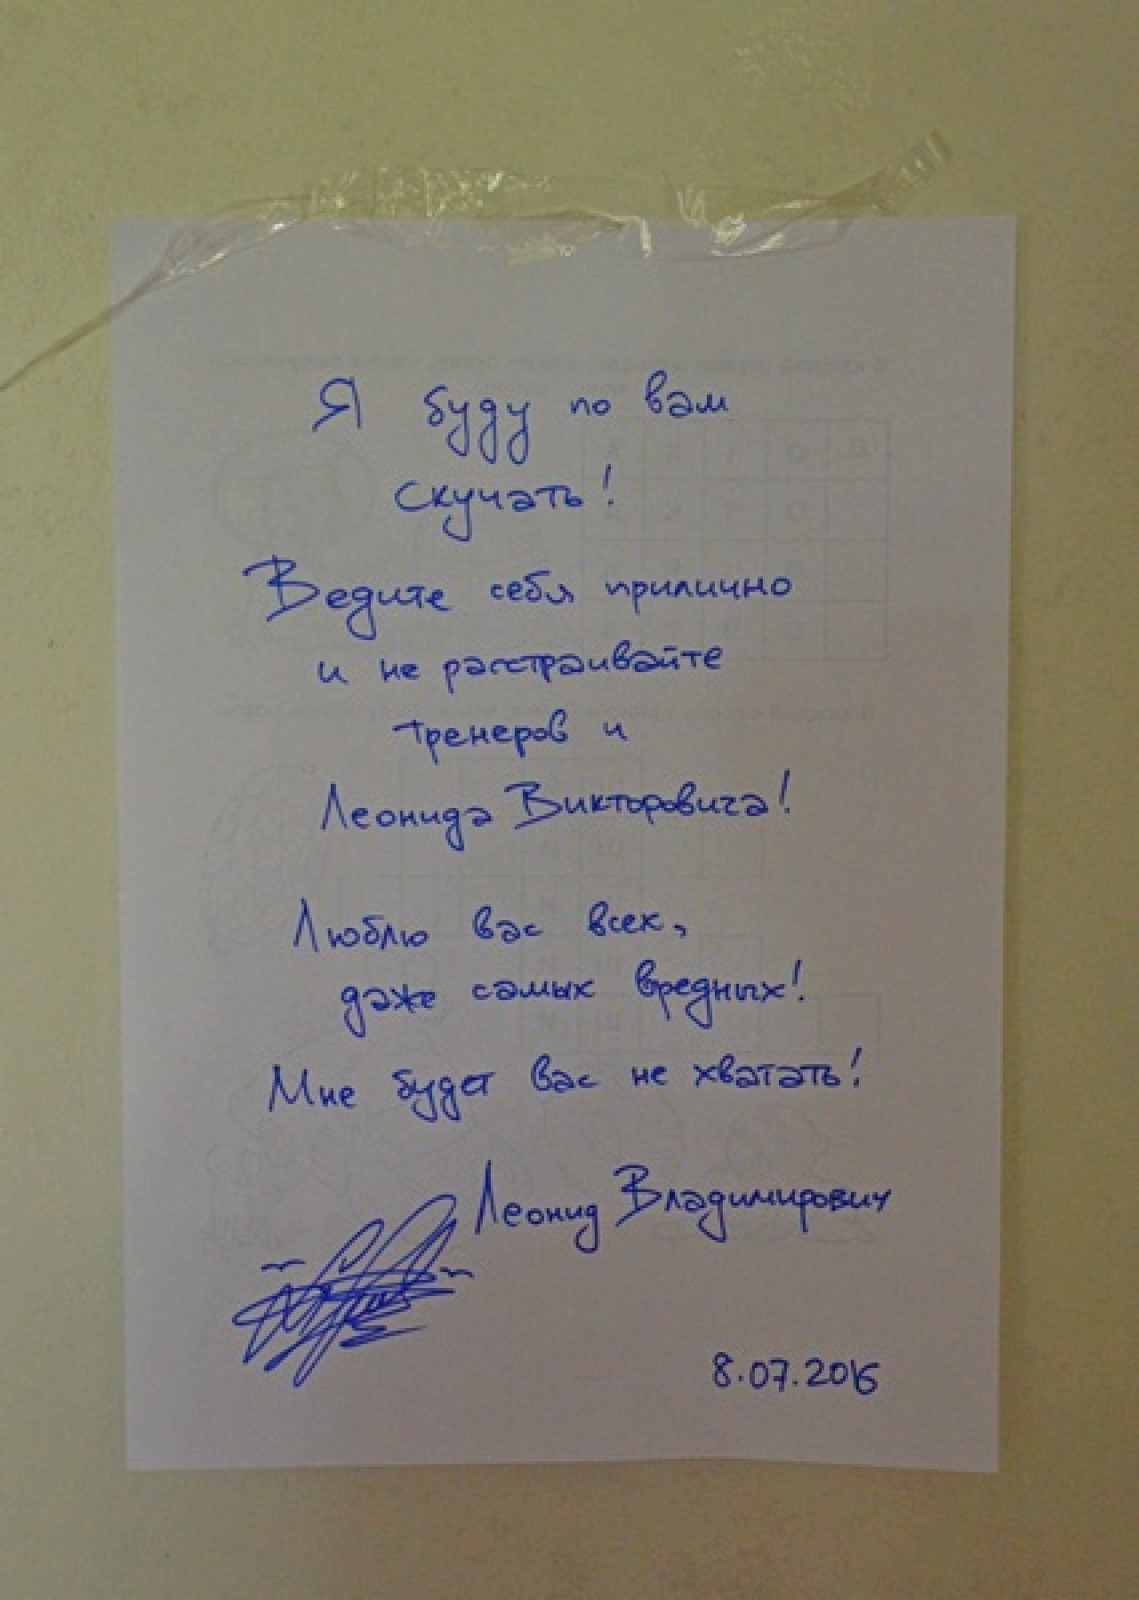 Я буду по вам
скучать!
Ведите себя прилично
и не расстраивайте
тренеров и
Леонида Викторовича!
Люблю вас всех,
даже самых вредных!
Мне будет вас не хватать!
Леонид Владимирович
8.07.2016